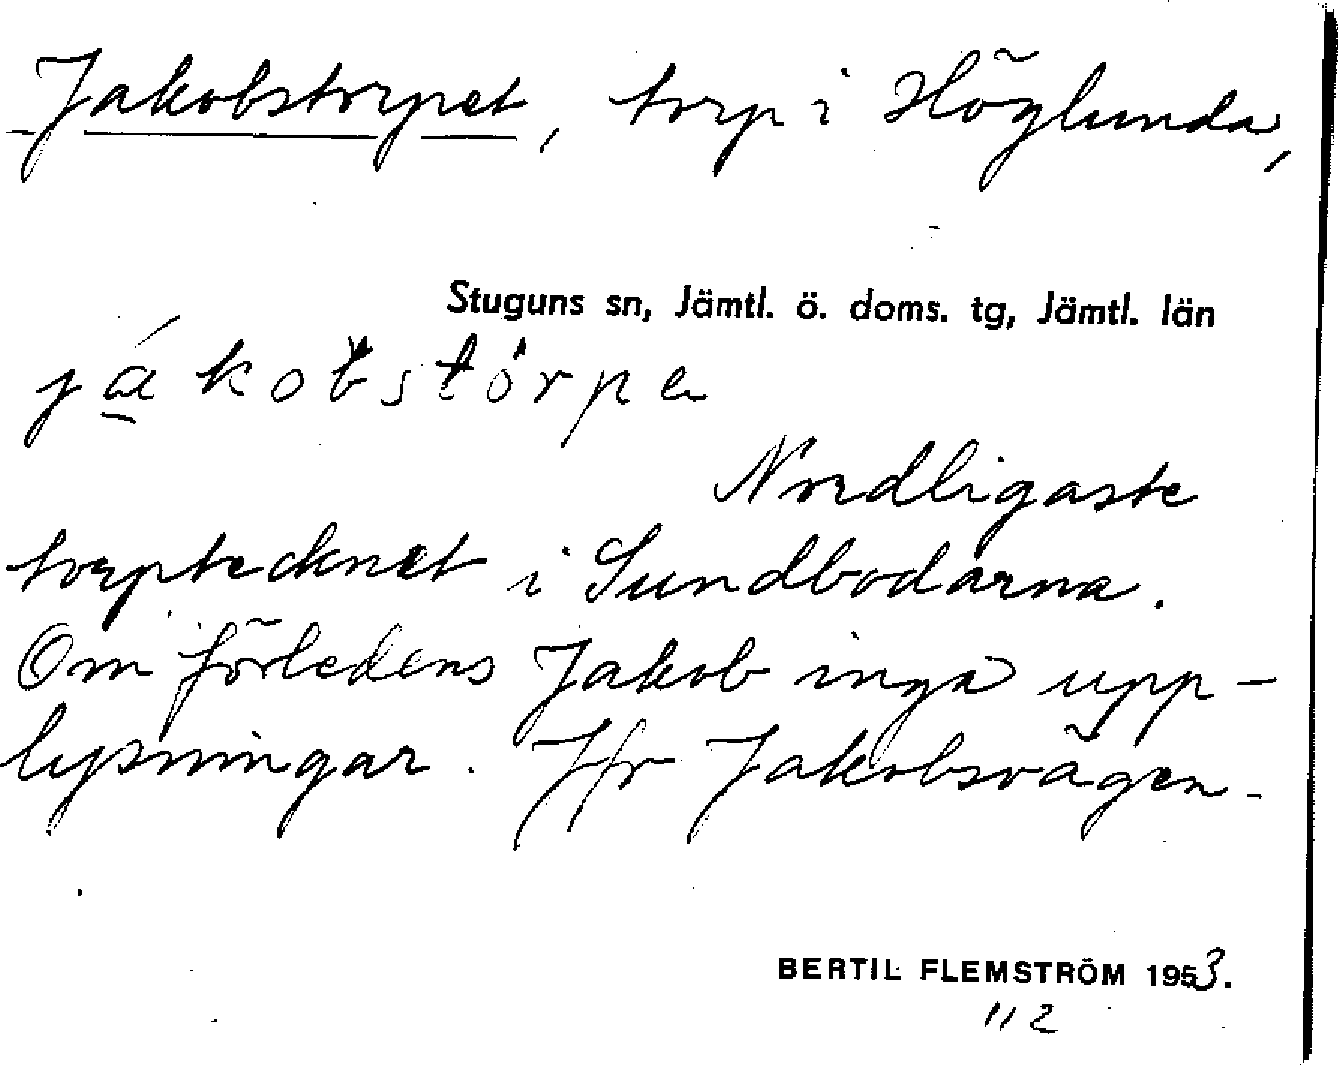 Jakobstorpet, torp i Höglunda,
Stuguns sn, Jämtl. ö. doms. tg, Jämtl. län
já̱kobstórpe
Nordligaste
torptecknet i Sundbodarna.
Om förledens Jakob inga upp-
lysningar. Jfr Jakobsvägen.
BERTIL FLEMSTRÖM 1953.
112